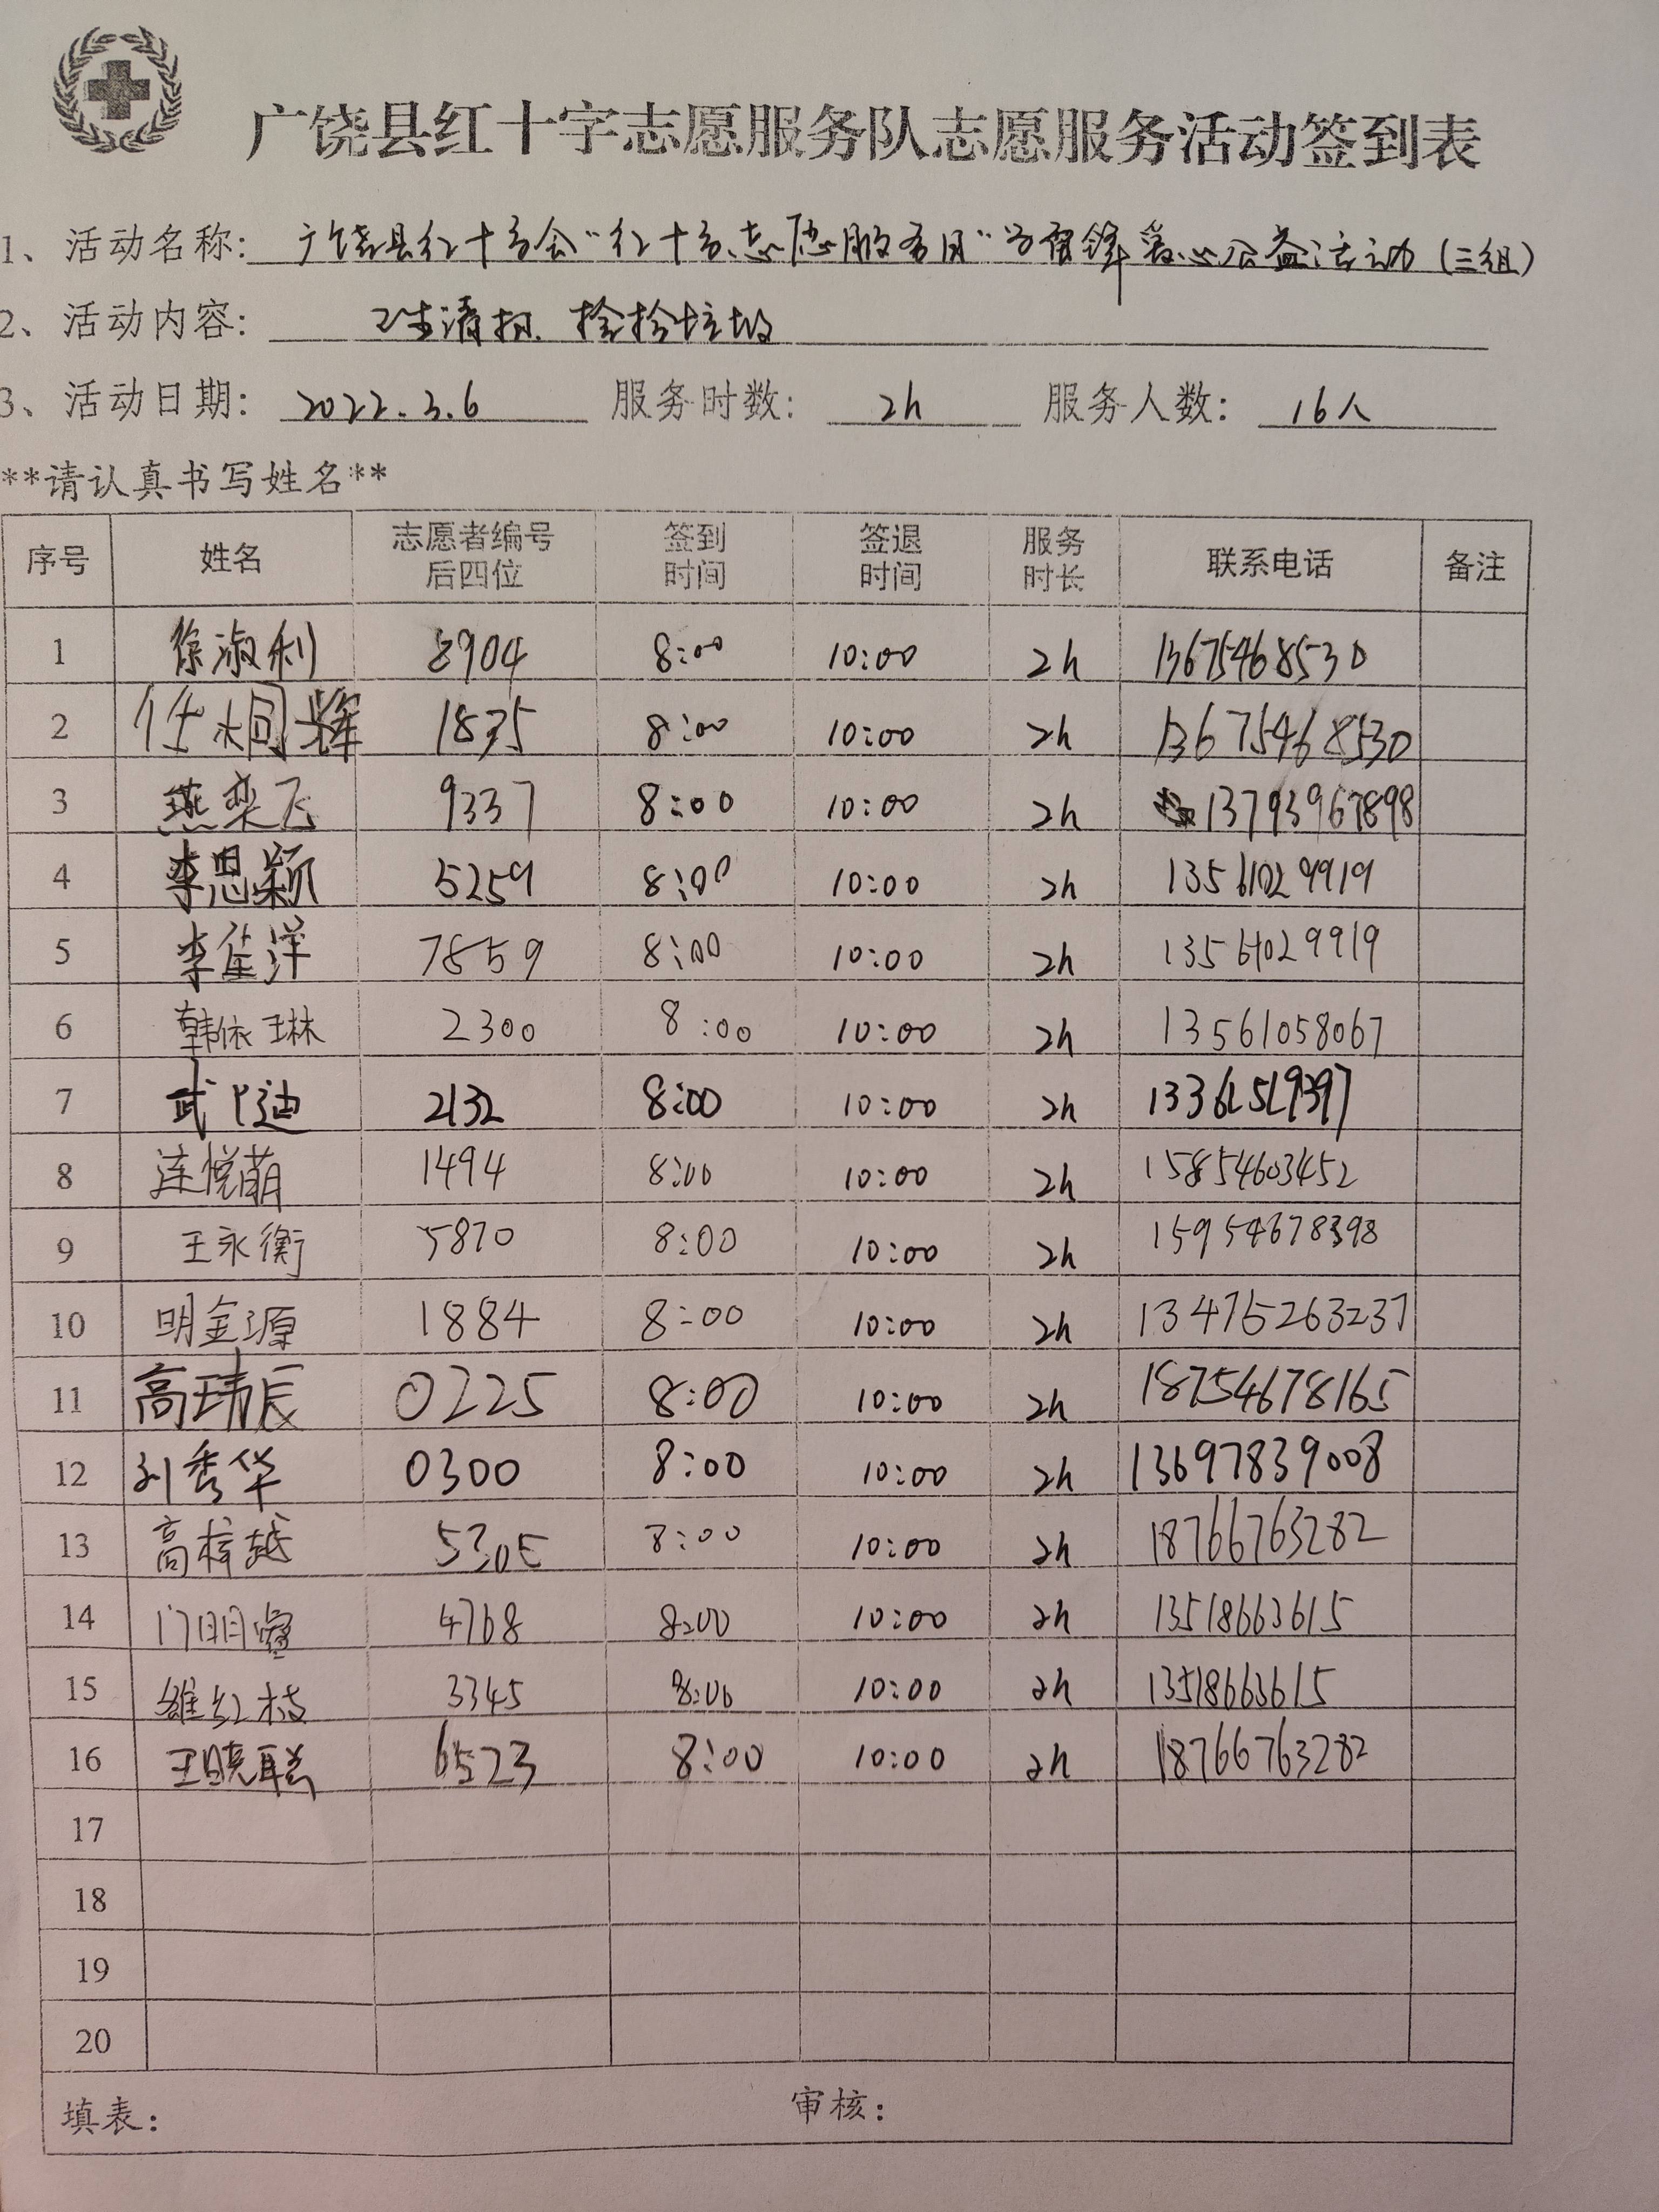 广饶县红十字志愿服务队志愿服务活动签到表
1、活动名称: 广饶县红十字会"红十字志愿服务月"学雷锋爱心公益活动(三组)
2、活动内容: 卫生清扫、捡拾垃圾
3、活动日期: 2022.3.6 服务时数: 2h 服务人数: 16人
**请认真书写姓名**
序号 姓名 志愿者编号后四位 签到时间 签退时间 服务时长 联系电话 备注
1 徐淑利 8904 8:00 10:00 2h 13675468530
2 任桐辉 1835 8:00 10:00 2h 13675468530
3 燕奕飞 9337 8:00 10:00 2h 13793967898
4 李思颖 5259 8:00 10:00 2h 13561029919
5 李笙洋 7859 8:00 10:00 2h 13561029919
6 韩依琳 2300 8:00 10:00 2h 13561058067
7 武 2132 8:00 10:00 2h
8 连悦萌 1494 8:00 10:00 2h 15854603452
9 王永衡 5870 8:00 10:00 2h 15954678398
10 明金源 1884 8:00 10:00 2h 13475263237
11 高玮辰 0225 8:00 10:00 2h 18754678165
12 刘秀华 0300 8:00 10:00 2h 13697839008
13 高梓越 5305 8:00 10:00 2h 18766763282
14 门明睿 4768 8:00 10:00 2h 13518663615
15 雒红枝 3345 8:00 10:00 2h 13518663615
16 王晓聪 6523 8:00 10:00 2h 18766763282
17
18
19
20
填表: 审核: